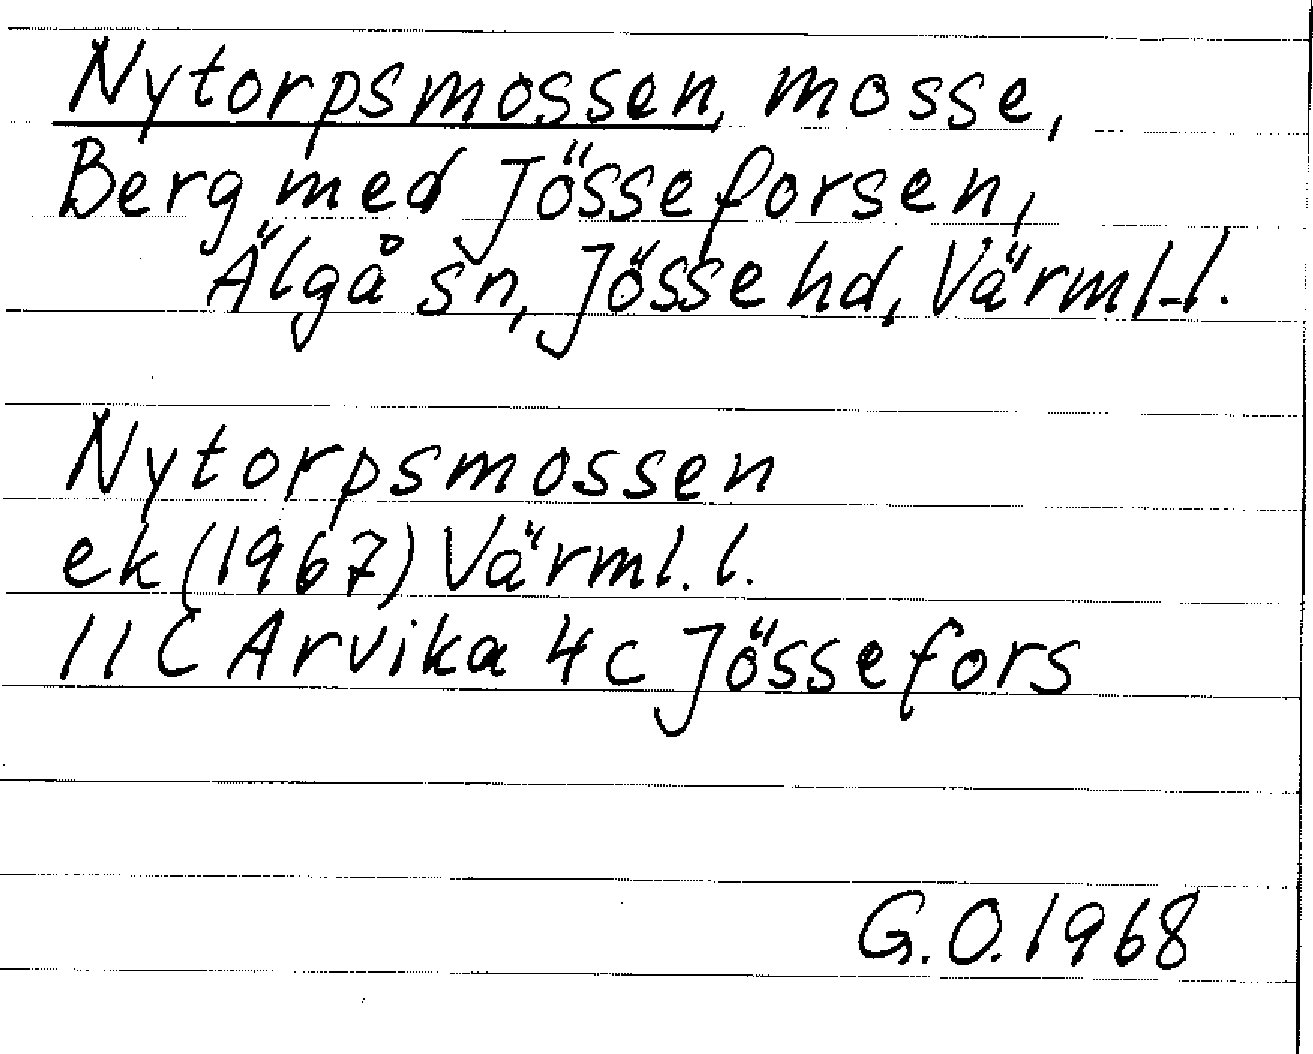 Nytorpsmossen, mosse,
Berg med Jösseforsen,
Älgå sn, Jösse hd, Värml.l.
Nytorpsmossen
ek (1967) Värml.l.
11C Arvika 4c Jössefors
G.O. 1968